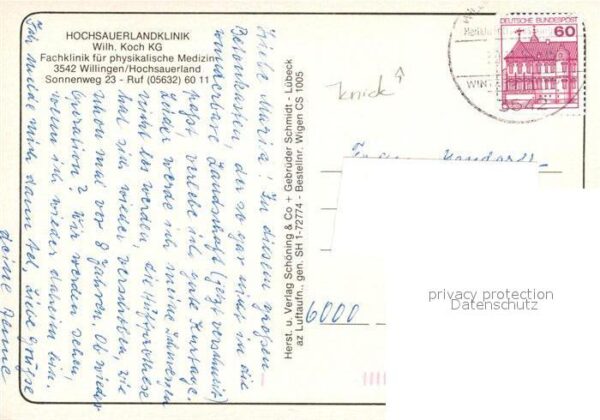 HOCHSAUERLANDKLINIK
Wilh. Koch KG
Fachklinik für physikalische Medizin
3542 Willingen/Hochsauerland
Sonnenweg 23 - Ruf (05632) 60 11
Liebe Maria! In diesem großen
Betonkasten, der so gar nicht in die
wunderbare Landschaft (jetzt verschneit)
paßt, verlebe ich gute Kurtage.
Leider werde ich meine Schmerzen
nicht los werden, die Hüftprothese
hat sich wieder verschoben, wie
schon mal vor 8 Jahren. Ob wieder
Operation? Wir werden sehen,
wenn ich wieder daheim bin.
Ich melde mich dann tel. Liebe Grüße
deine
Herst. u. Verlag Schöning & Co + Gebrüder Schmidt - Lübeck
az Luftaufn., gen. SH 1-72774 - Bestellnr. Wigen CS 1005
Knick
DEUTSCHE BUNDESPOST
60
3542
6000
privacy protection
Datenschutz